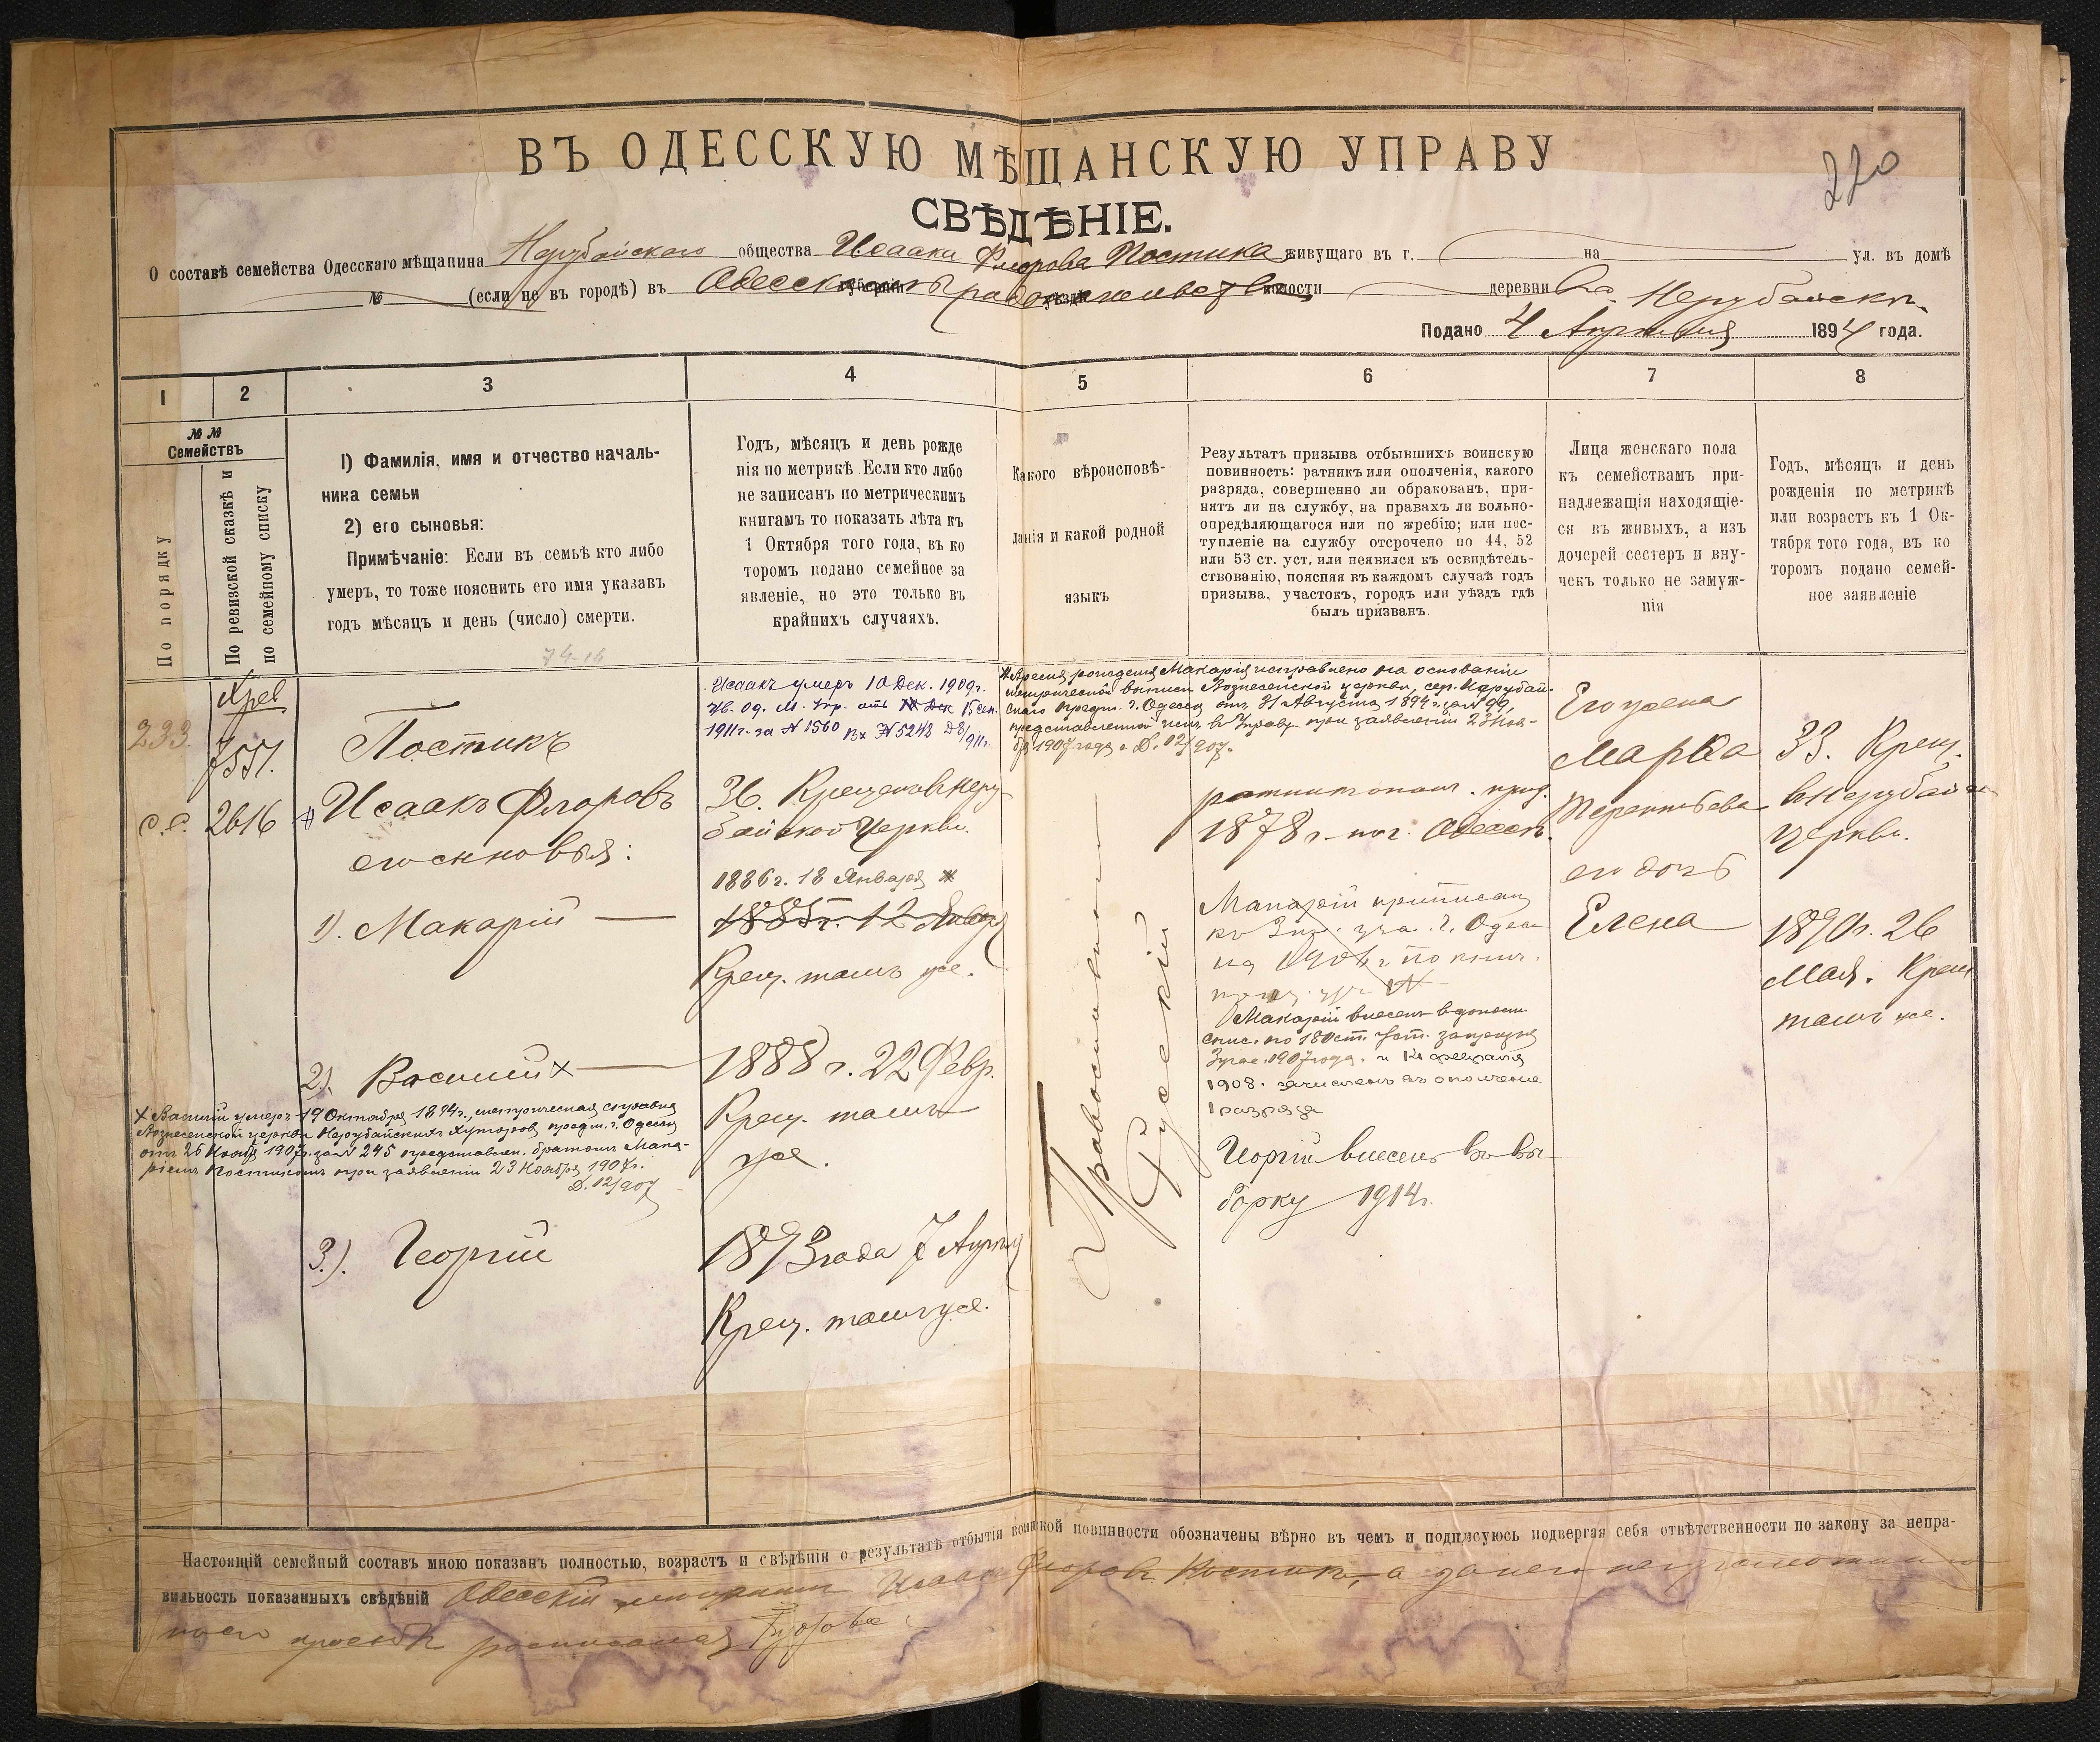 220
ВЪ ОДЕССКУЮ МѢЩАНСКУЮ УПРАВУ
СВѢДѢНІЕ.
О составѣ семейства Одесскаго мѣщанина Нерубайскаго общества Исаака Флорова Постика живущаго въ г. на ул. въ домѣ
№ (если не въ городѣ) въ Одесскомъ градоначальствѣ деревни Нерубайскъ
Подано 4 Апрѣля 1894 года.
1 2 3 4 5 6 7 8
№№
Семействъ
По порядку
По ревизской сказкѣ и
по семейному списку
1) Фамилія, имя и отчество началь-
ника семьи
2) его сыновья:
Примѣчаніе: Если въ семьѣ кто либо
умеръ, то тоже пояснить его имя указавъ
годъ мѣсяцъ и день (число) смерти.
74-16
Годъ, мѣсяцъ и день рожде
нія по метрикѣ Если кто либо
не записанъ по метрическимъ
книгамъ то показать лѣта къ
1 Октября того года, въ ко
торомъ подано семейное за
явленіе, но это только въ
крайнихъ случаяхъ.
Какого вѣроисповѣ-
данія и какой родной
языкъ
Результатъ призыва отбывшихъ воинскую
повинность: ратникъ или ополченія, какого
разряда, совершенно ли обракованъ, при-
нятъ ли на службу, на правахъ ли вольно-
опредѣляющагося или по жребію; или пос-
тупленіе на службу отсрочено по 44, 52
или 53 ст. уст, или неявился къ освидѣтель-
ствованію, поясняя въ каждомъ случаѣ годъ
призыва, участокъ, городъ или уѣздъ гдѣ
былъ призванъ.
Лица женскаго пола
къ семействамъ при-
надлежащія находящіе-
ся въ живыхъ, а изъ
дочерей сестеръ и вну-
чекъ только не замуж-
нія
Годъ, мѣсяцъ и день
рожденія по метрикѣ
или возрастъ къ 1 Ок-
тября того года, въ ко
торомъ подано семей-
ное заявленіе
233.
с.с. 2616
Постикъ
Исаакъ Флоровъ
его сыновья:
1). Макарій
2). Василій ×
× Василій умеръ 19 Октября 1894г., метрическая справка
Вознесенской церкви Нерубайскихъ Хуторовъ предм. г. Одессы
отъ 26 Ноября 1907г. за № 245 представлен. братомъ Мака-
ріемъ Постикомъ при заявленіи 23 Ноября 1907г.
Д. 12/907
3.). Георгій
Исаакъ умеръ 10 Дек. 1909г.
Ув. Од. М. Упр. отъ 15 сен.
1911г. за № 1560 Вх № 5248 Д 8/911г.
36. Крещенъ в Неру-
байской Церкви.
1886г. 18 Января ж
1885г. 12 Января
Крещ. тамъ же.
1888 г. 22 Февр.
Крещ. тамъ
же.
1893 года 7 Апрѣля
Крещ. тамъ же.
Православный
Русскій
Время рожденія Макарія исправлено на основаніи
метрической выписи Вознесенской церкви, сел. Нерубай-
скаго предм. г. Одессы отъ 31 Августа 1894 г. за № 99,
представленной имъ въ Управу при заявленіи 23 Ноя-
бр 1907 года. Д. 12/907.
1878 г. Одесск.
Макарій приписанъ
къ Одес
на
Макарій внесенъ в допол.
спис. по 180 ст. Уст.
1907 года. и февраля
1908. зачисленъ въ ополченіе
1 разряда
Георгій внесенъ въ вы-
борку 1914г.
Его жена
Марва
Терентьева
его дочь
Елена
33. Крещ.
в Нерубайск.
Церкви.
1890г. 26
Мая. Крещ
тамъ же.
Настоящій семейный составъ мною показанъ полностью, возрастъ и свѣдѣнія о результатѣ отбытія воинской повинности обозначены вѣрно въ чемъ и подписуюсь подвергая себя отвѣтственности по закону за непра-
вильность показанныхъ свѣдѣній Одесскій мѣщанинъ Исаакъ Флоровъ Постикъ, а за него неграмотнаго